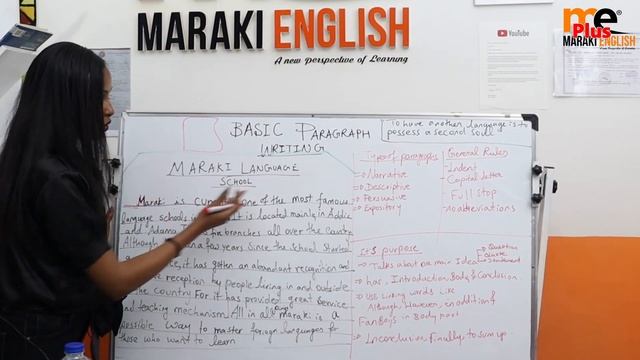 MARAKI ENGLISH
A new perspective of Learning
me
Plus
MARAKI ENGLISH
YouTube
BASIC PARAGRAPH
WRITING
To have another language is to
possess a second soul
MARAKI LANGUAGE
SCHOOL
Maraki is one of the most famous
language schools in it is located mainly in Addis
and Adama branches all over the Country
Although a few years Since the School started
it has gotten an abundant recognition and
reception by people living in and outside
the country. For it has provided great Service
and teaching mechanism. All in all Maraki is a
possible way to master foreign languages for
those who want to learn
Types of paragraphs
Narrative
Descriptive
Persuasive
Expository
General Rules
Indent
Capital letter
Full Stop
no abbreviations
its purpose
Talks about one main Idea
Question
Quote
Statement
has, Introduction, Body & Conclusion
Use linking words like
Although, However, in addition &
Fanboys in Body part
In conclusion, Finally, to sum up.